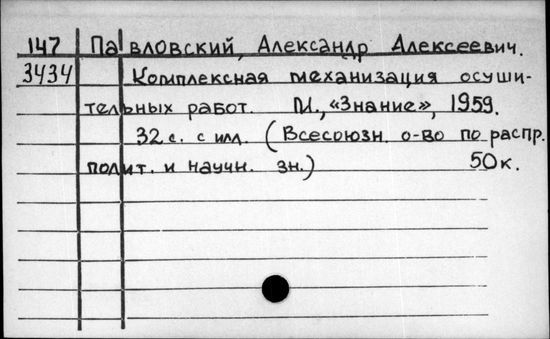 147 Павловский, Александр Алексеевич.
3434 Комплексная механизация осуши-
тельных работ. М., «Знание», 1959.
32 с. с илл. (Всесоюзн. о-во по распр.
полит. и научн. зн.) 50к.